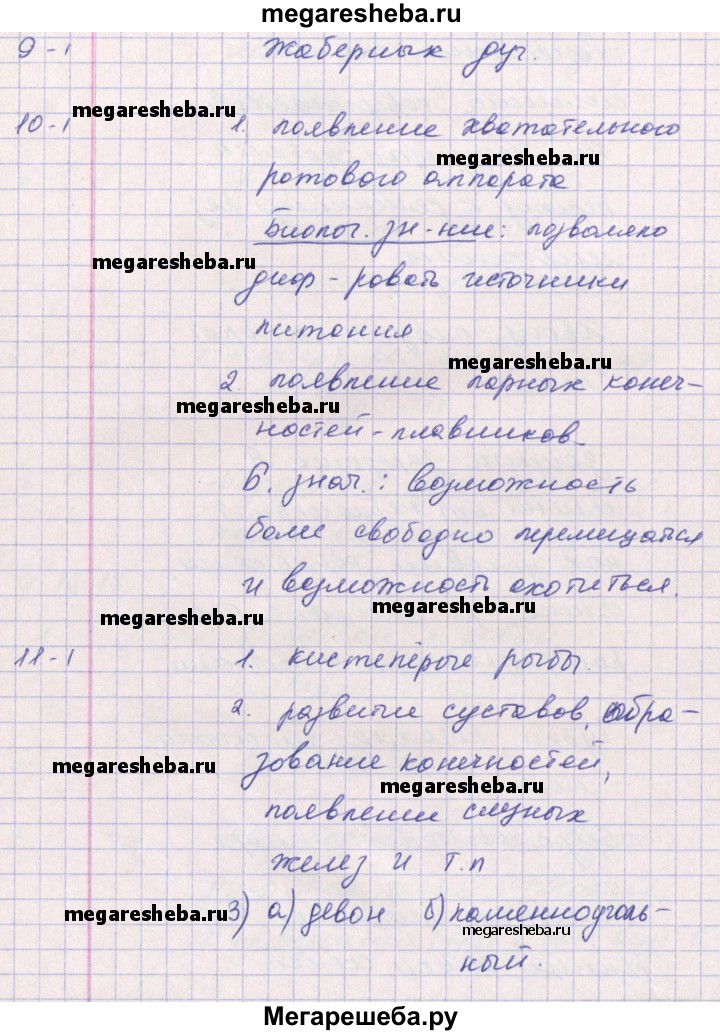 megaresheba.ru
9-1 Жаберных дуг.
megaresheba.ru
10-1 1. появление хватательного
megaresheba.ru
ротового аппарата
Биолог. зн-ние: позволяло
megaresheba.ru
диф-ровать источники
питания
megaresheba.ru
2. появление парных конеч-
megaresheba.ru
ностей-плавников
Б. знач.: возможность
более свободно перемещаться
и возможность охотиться.
megaresheba.ru
megaresheba.ru
11-1 1. кистепёрые рыбы.
2. развитие суставов, обра-
megaresheba.ru
зование конечностей,
megaresheba.ru
появление слезных
желез и т.п
megaresheba.ru
3) а) девон б) каменноуголь-
megaresheba.ru
ный.
Мегарешеба.ру